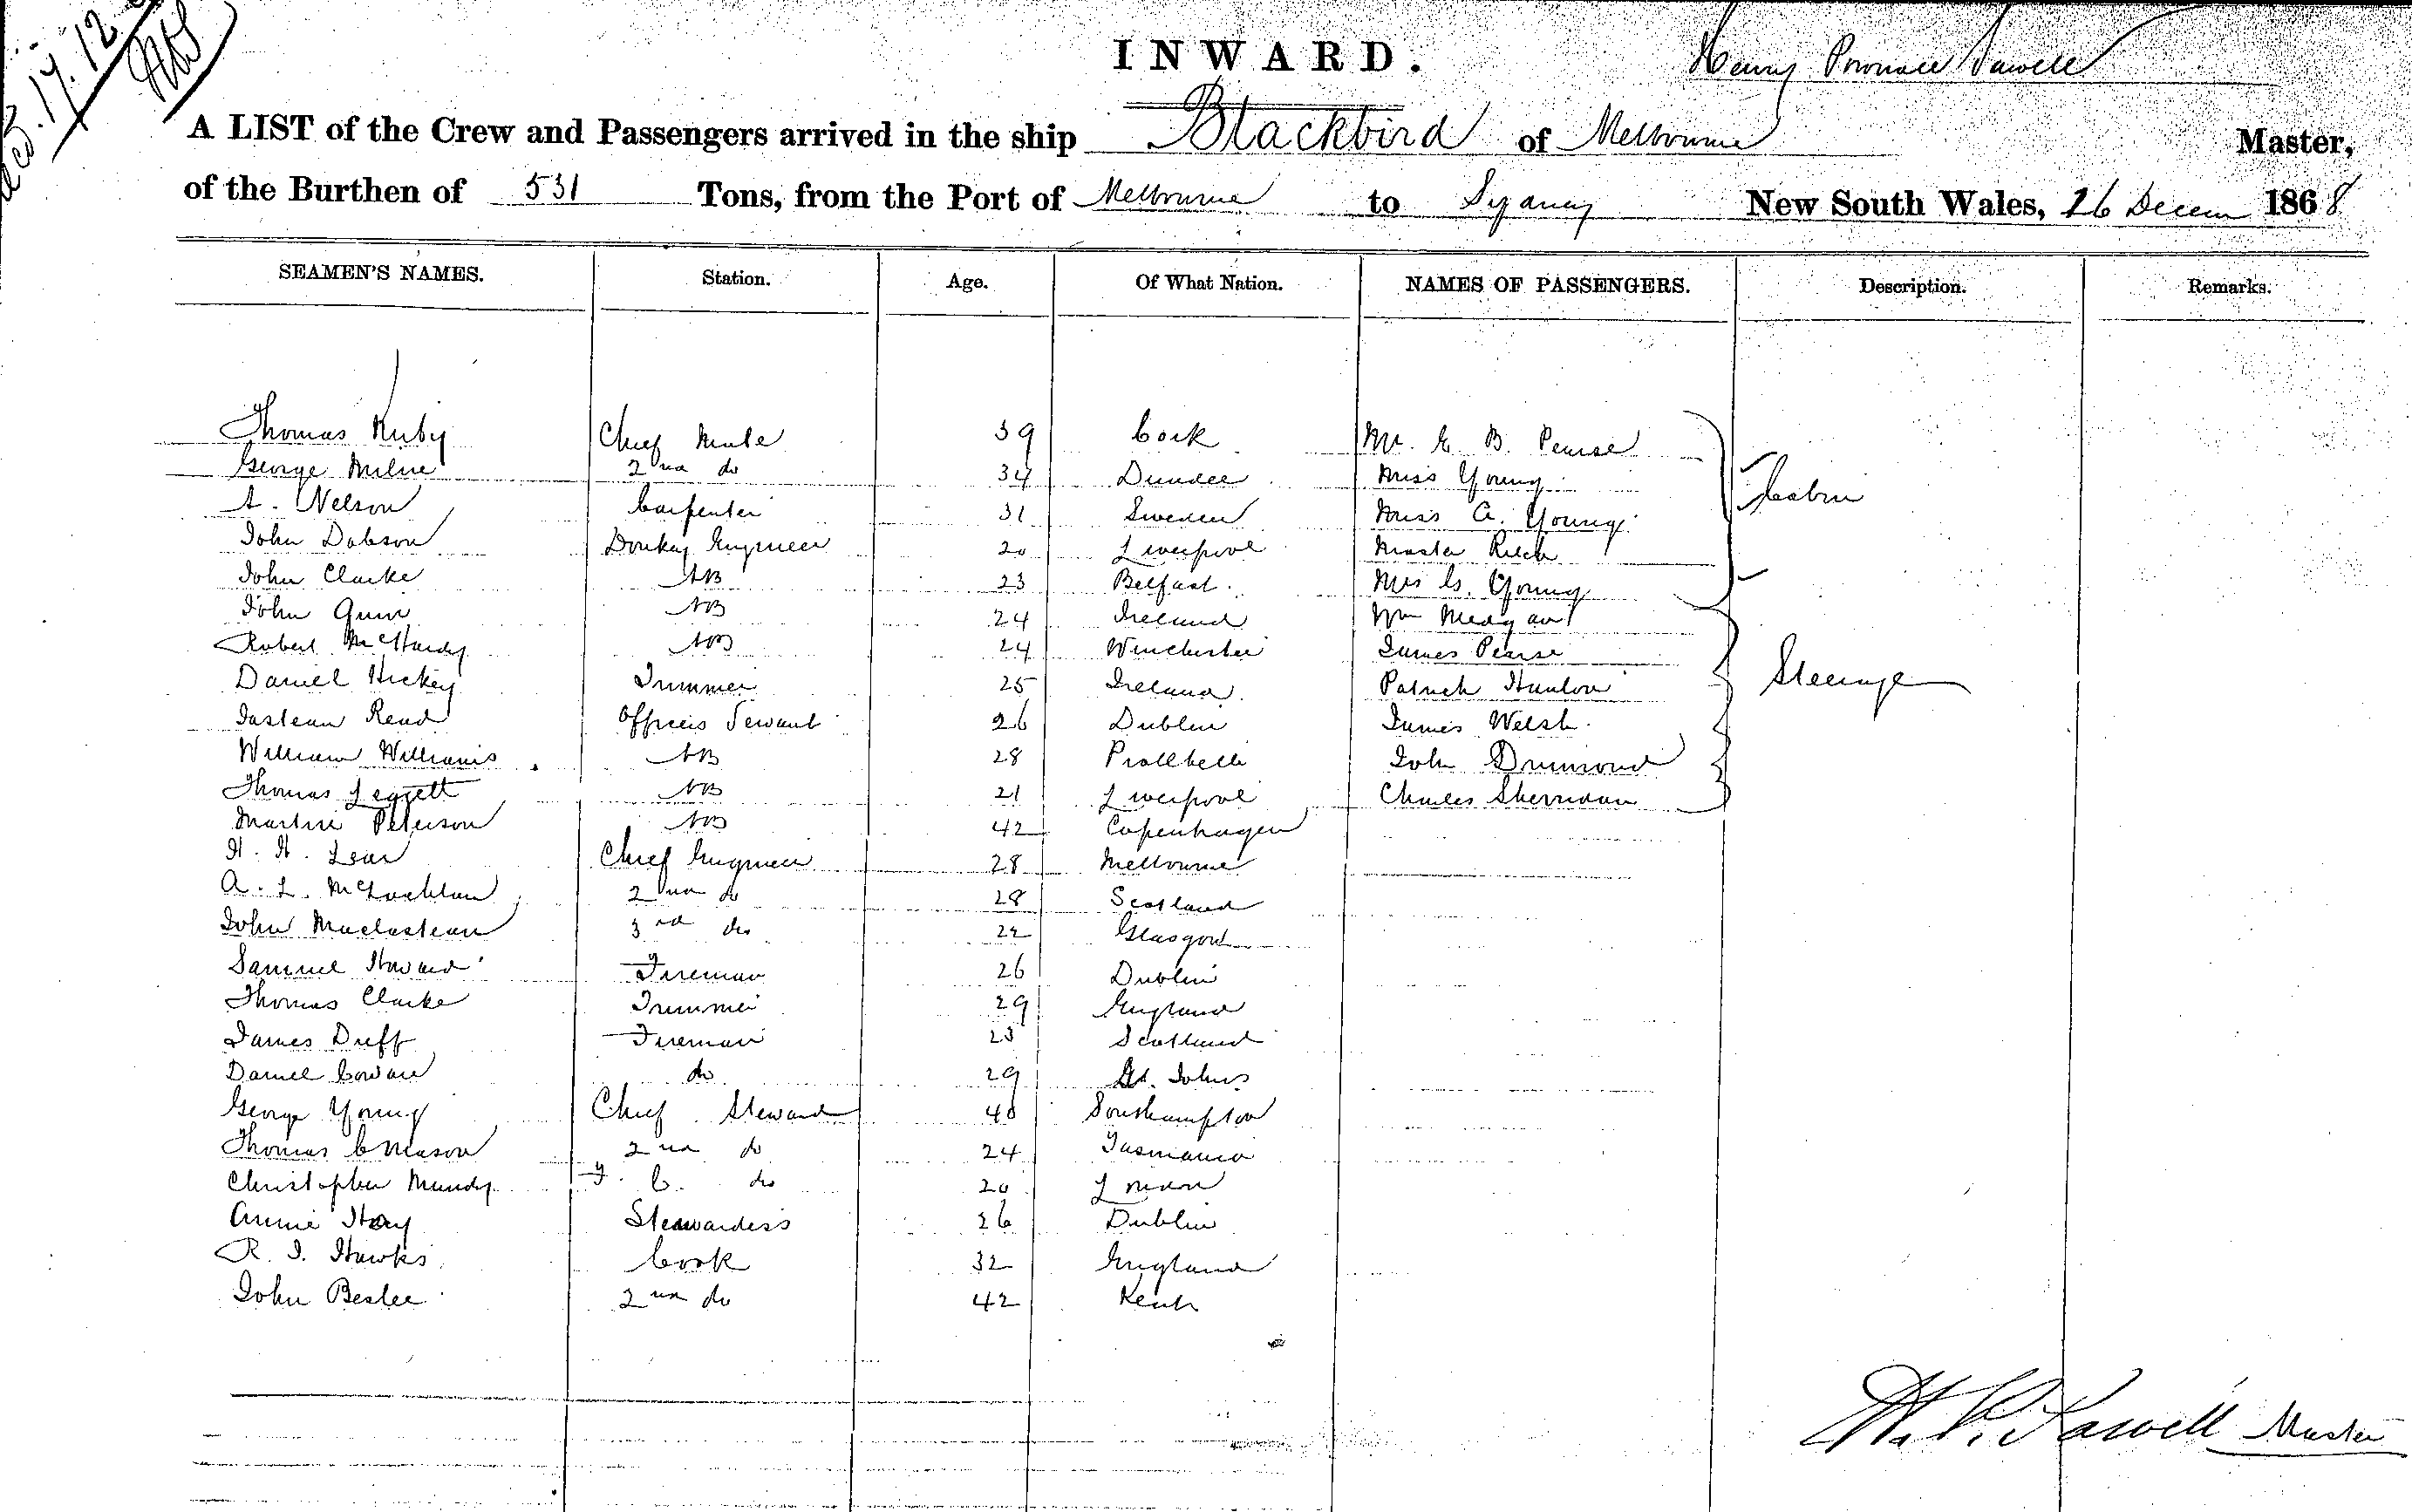 17.12
INWARD.
Henry Sawell
A LIST of the Crew and Passengers arrived in the ship Blackbird of Melbourne Master,
of the Burthen of 531 Tons, from the Port of Melbourne to Sydney New South Wales, 16 Decem 1868
SEAMEN'S NAMES. Station. Age. Of What Nation. NAMES OF PASSENGERS. Description. Remarks.
Thomas Kirby Chief Mate 39 Cork Mr. E B. Pearse
George Milne 2nd do 34 Dundee Miss Young
A. Nelson Carpenter 31 Sweden Miss A. Young Cabin
John Dobson Donkey Engineer 20 Liverpool Master
John Clarke AB 23 Belfast. Mrs G. Young
John Quin AB 24 Ireland Wm
Robert McHardy AB 24 Winchester James Pearse
Daniel Hickey Trimmer 25 Ireland Patrick Hanlon Steerage
Read Officers Servant 26 Dublin James Welsh.
William Williams AB 28 John Drumond
Thomas Leggett AB 21 Liverpool Charles Sherridan
Martin Peterson AB 42 Copenhagen
H. H. Lear Chief Engineer 28 Melbourne
A. L. McLachlan 2nd do 28 Scotland
John 3rd do 22 Glasgow
Samuel Howard Fireman 26 Dublin
Thomas Clarke Trimmer 29 England
James Duff Fireman 25 Scotland
Daniel Cowan do 29 St. Johns
George Young Chief Steward 40 Southampton
Thomas C Mason 2nd do 24 Tasmania
Christopher Mundy F. C. do 20
Annie Hay Stewardess 26 Dublin
R. J. Hawks Cook 32 England
John Beslee 2nd do 42 Kent
H. P. Sawell Master